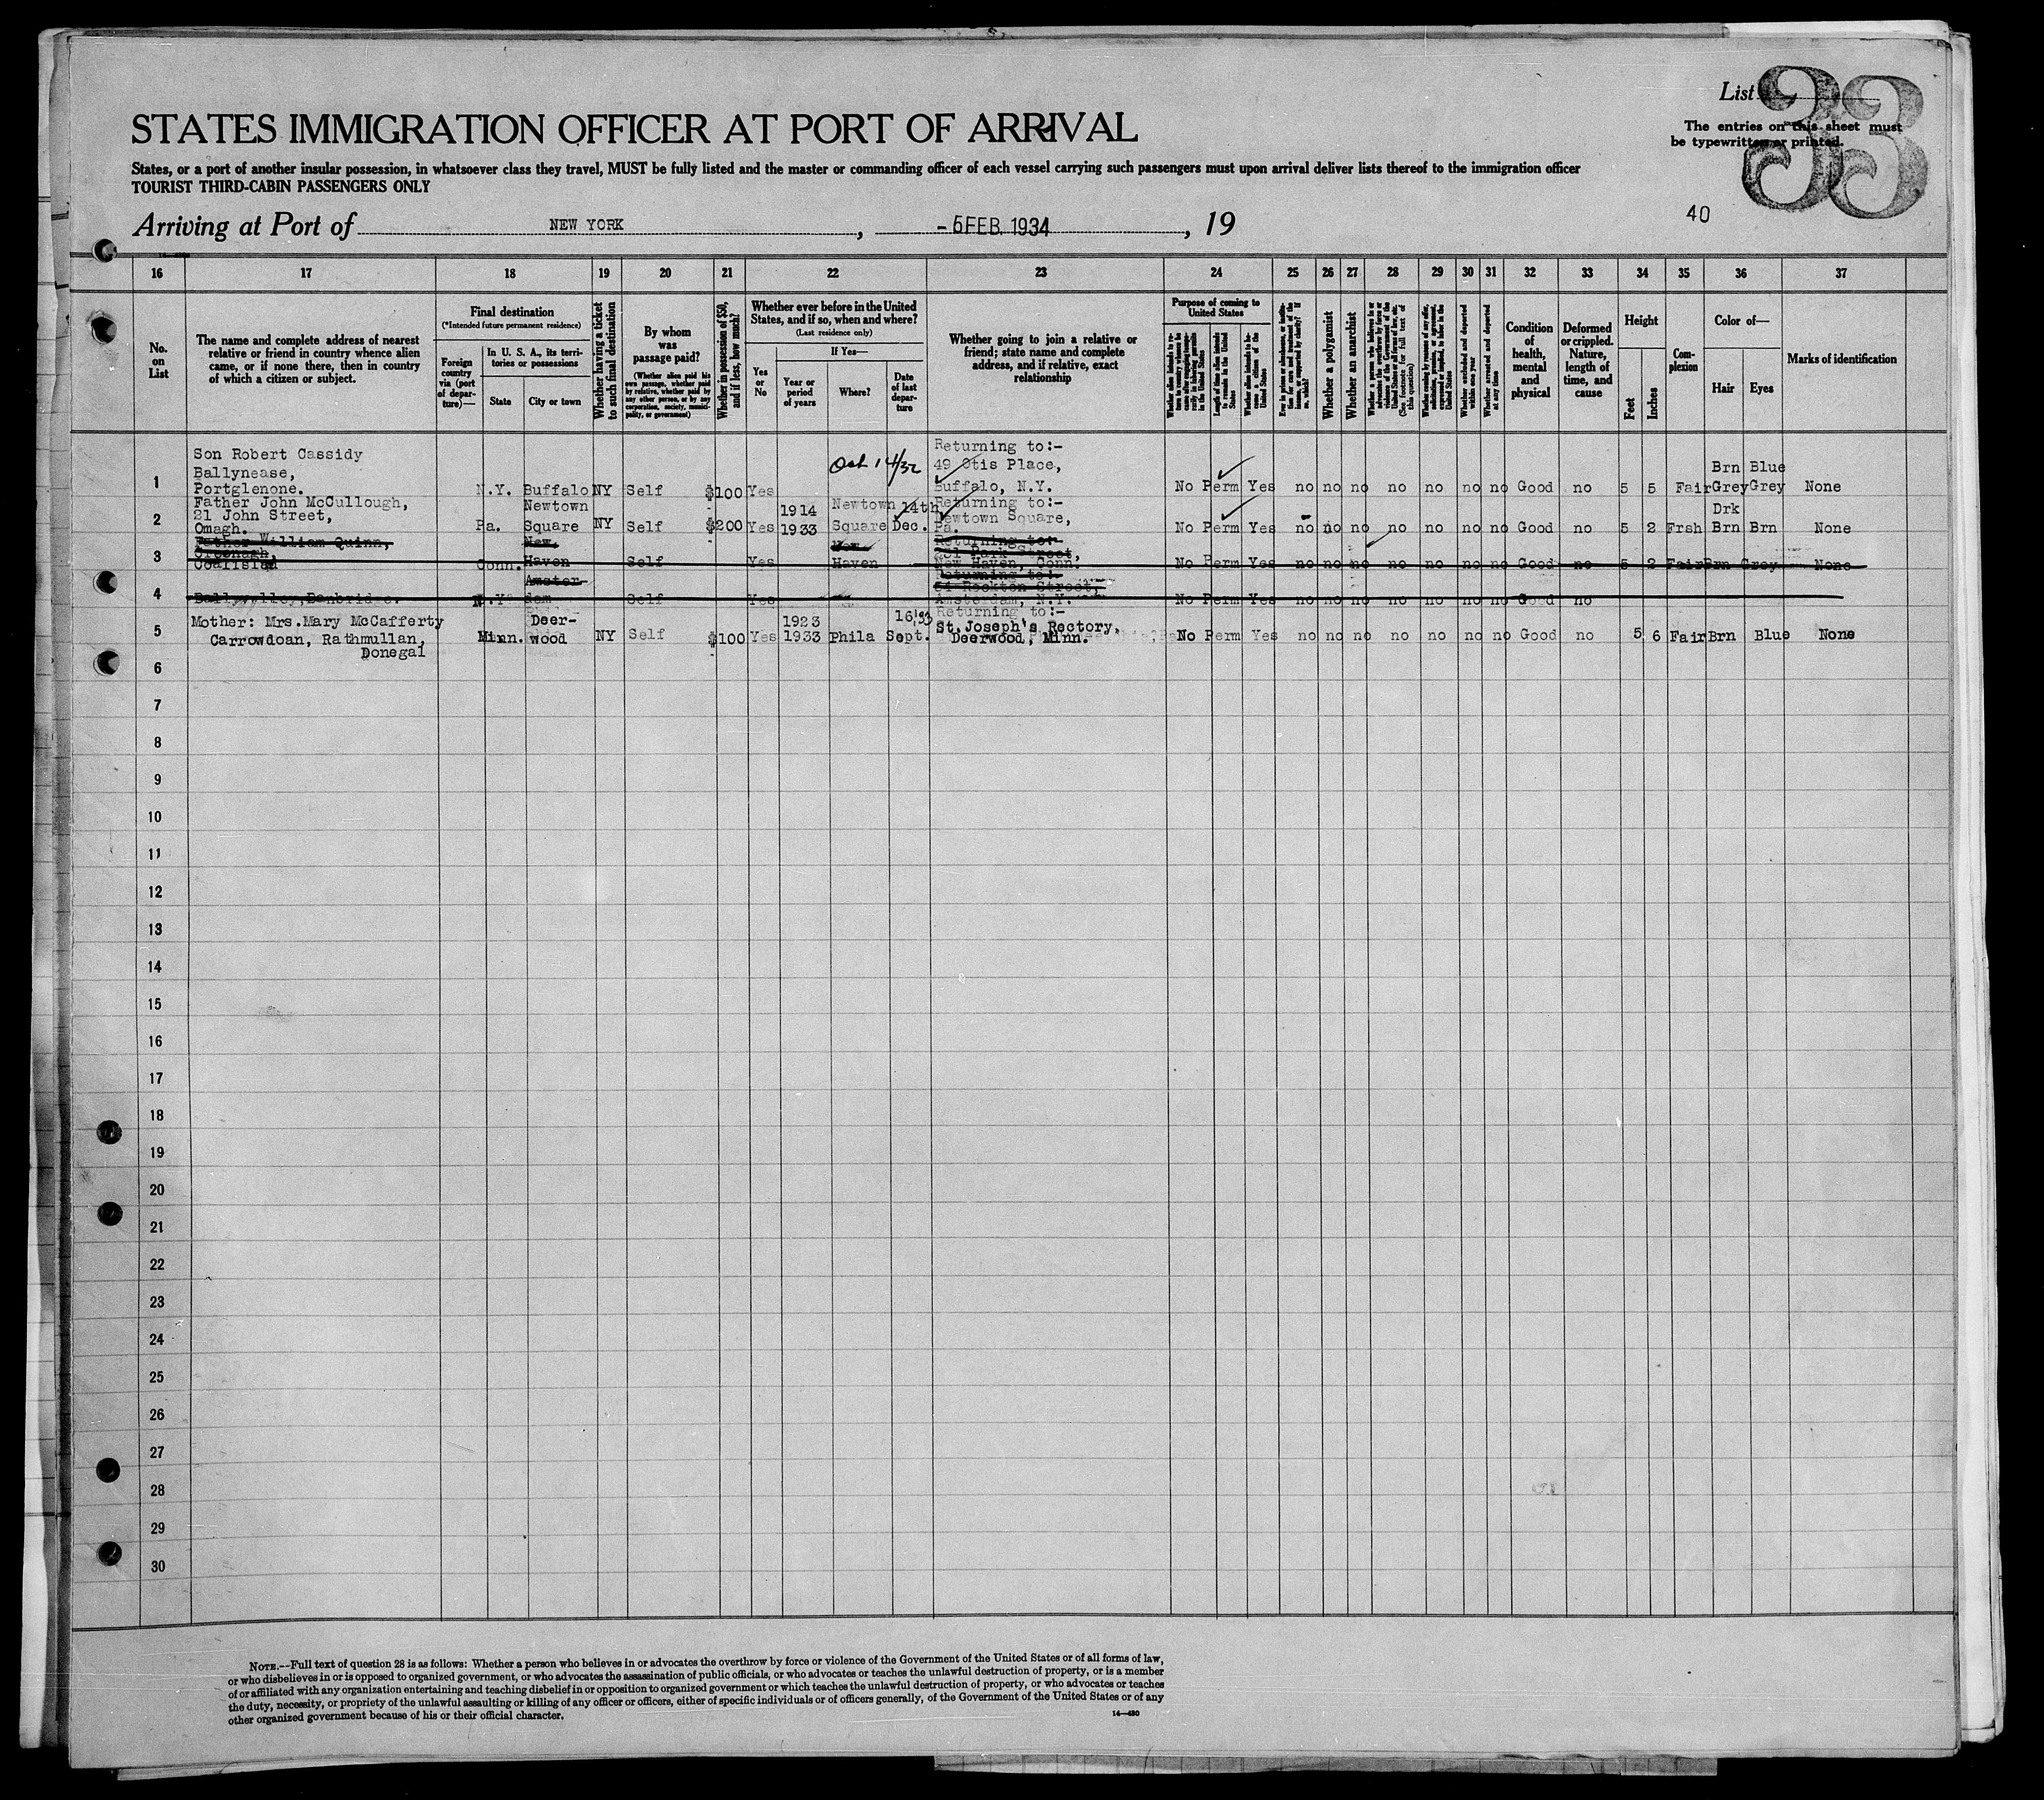 List
33
The entries on this sheet must
be typewritten or printed.
STATES IMMIGRATION OFFICER AT PORT OF ARRIVAL
States, or a port of another insular possession, in whatsoever class they travel, MUST be fully listed and the master or commanding officer of each vessel carrying such passengers must upon arrival deliver lists thereof to the immigration officer
TOURIST THIRD-CABIN PASSENGERS ONLY
40
Arriving at Port of NEW YORK, -5 FEB. 1934, 19
16 17 18 19 20 21 22 23 24 25 26 27 28 29 30 31 32 33 34 35 36 37
No.
on
List
The name and complete address of nearest
relative or friend in country whence alien
came, or if none there, then in country
of which a citizen or subject.
Final destination
(*Intended future permanent residence)
Foreign
country
via (port
of depar-
ture)—
In U. S. A., its terri-
tories or possessions
State
City or town
Whether having a ticket
to such final destination
By whom
was
passage paid?
(Whether alien paid his
own passage, whether paid
by relative, whether paid by
any other person, or by any
corporation, society, munici-
pality, or government)
Whether in possession of $50,
and if less, how much?
Whether ever before in the United
States, and if so, when and where?
(Last residence only)
Yes
or
No
If Yes—
Year or
period
of years
Where?
Date
of last
depar-
ture
Whether going to join a relative or
friend; state name and complete
address, and if relative, exact
relationship
Purpose of coming to
United States
Length of time alien intends
to remain in the United
States
Whether alien intends to be-
come a citizen of the
United States
Whether a polygamist
Whether an anarchist
Whether excluded and deported
within one year
Whether arrested and deported
at any time
Condition
of
health,
mental
and
physical
Deformed
or crippled.
Nature,
length of
time, and
cause
Height
Feet
Inches
Com-
plexion
Color of—
Hair
Eyes
Marks of identification
Son Robert Cassidy
Ballynease,
Portglenone.
1 N.Y. Buffalo NY Self $100 Yes Oct 14/32
Returning to:-
49 Otis Place,
Buffalo, N.Y.
No Perm Yes no no no no no no no Good no 5 5 Fair
Brn Blue
Grey Grey None
Father John McCullough,
21 John Street,
Omagh.
2 Pa.
Newtown
Square NY Self $200 Yes
1914
1933
Newtown
Square
14th
Dec.
Returning to:-
Newtown Square,
Pa.
No Perm Yes no no no no no no no Good no 5 2 Frsh
Drk
Brn Brn None
Father William Quinn,
Coalisland
3 Conn.
New
Haven Self Yes
New
Haven
Returning to:
Park Street,
New Haven, Conn.
No Perm Yes no no no no no no no Good no 5 2 Fair Brn Grey None
4 N.Y.
Amster-
dam Self Yes
Returning to:
Street,
Amsterdam, N.Y.
No Perm Yes no no no no no no no Good no
Mother: Mrs.Mary McCafferty
Carrowdoan, Rathmullan,
Donegal
5 Minn.
Deer-
wood NY Self $100 Yes
1923
1933 Phila
16'33
Sept.
Returning to:-
St.Joseph's Rectory,
Deerwood, Minn.
No Perm Yes no no no no no no no Good no 5 6 Fair Brn Blue None
6
7
8
9
10
11
12
13
14
15
16
17
18
19
20
21
22
23
24
25
26
27
28
29
30
NOTE.—Full text of question 28 is as follows: Whether a person who believes in or advocates the overthrow by force or violence of the Government of the United States or of all forms of law,
or who disbelieves in or is opposed to organized government, or who advocates the assassination of public officials, or who advocates or teaches the unlawful destruction of property, or is a member
of or affiliated with any organization entertaining and teaching disbelief in or opposition to organized government or which teaches the unlawful destruction of property, or who advocates or teaches
the duty, necessity, or propriety of the unlawful assaulting or killing of any officer or officers, either of specific individuals or of officers generally, of the Government of the United States or of any
other organized government because of his or their official character.
14—480